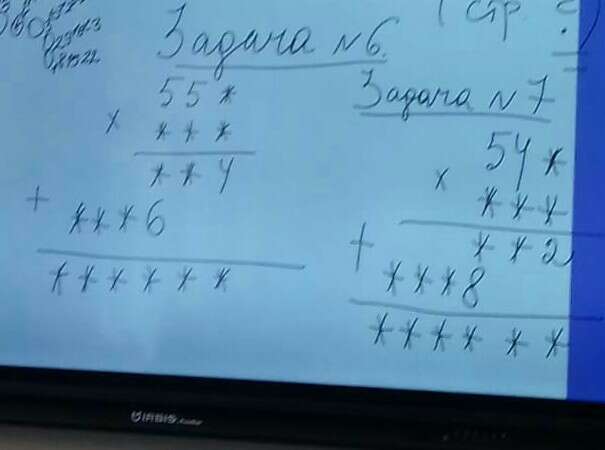 (стр.
Задача №6.
55*
× ***
**4
+ ***6
******
Задача №7
54*
× ***
**2
+ ***8
******
IRBIS